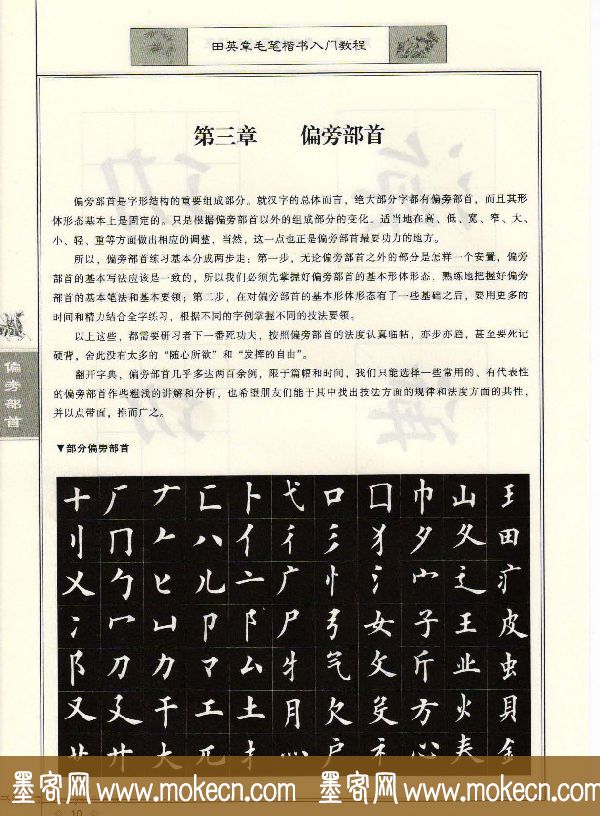 田英章毛笔楷书入门教程
第三章 偏旁部首
偏旁部首是字形结构的重要组成部分。就汉字的总体而言，绝大部分字都有偏旁部首，而且其形
体形态基本上是固定的。只是根据偏旁部首以外的组成部分的变化，适当地在高、低、宽、窄、大、
小、轻、重等方面做出相应的调整，当然，这一点也正是偏旁部首最要功力的地方。
所以，偏旁部首练习基本分成两步走：第一步，无论偏旁部首之外的部分是怎样一个安置，偏旁
部首的基本写法应该是一致的，所以我们必须先掌握好偏旁部首的基本形体形态，熟练地把握好偏旁
部首的基本笔法和基本要领；第二步，在对偏旁部首的基本形体形态有了一些基础之后，要用更多的
时间和精力结合全字练习，根据不同的字例掌握不同的技法要领。
以上这些，都需要研习者下一番死功夫，按照偏旁部首的法度认真临帖，亦步亦趋，甚至要死记
硬背，舍此没有太多的“随心所欲”和“发挥的自由”。
翻开字典，偏旁部首几乎多达两百余例，限于篇幅和时间，我们只能选择一些常用的、有代表性
的偏旁部首作些粗浅的讲解和分析，也希望朋友们能于其中找出技法方面的规律和法度方面的共性，
并以点带面，推而广之。
偏旁部首
▼部分偏旁部首
十 厂 𠂇 匚 卜 弋 口 囗 巾 山 王
刂 冂 𠂉 八 亻 彳 彡 犭 夕 夂 田
乂 勹 匕 儿 亠 广 忄 氵 宀 辶 疒
冫 冖 凵 卩 阝 尸 弓 女 子 王 皮
阝 刀 力 龴 厶 牜 气 攵 斤 业 虫
又 廴 干 工 土 月 欠 殳 方 火 貝
艹 廾 大 兀 扌 灬 户 礻 心 金
墨客网 www.mokecn.com 墨客网 www.mokecn.com
10